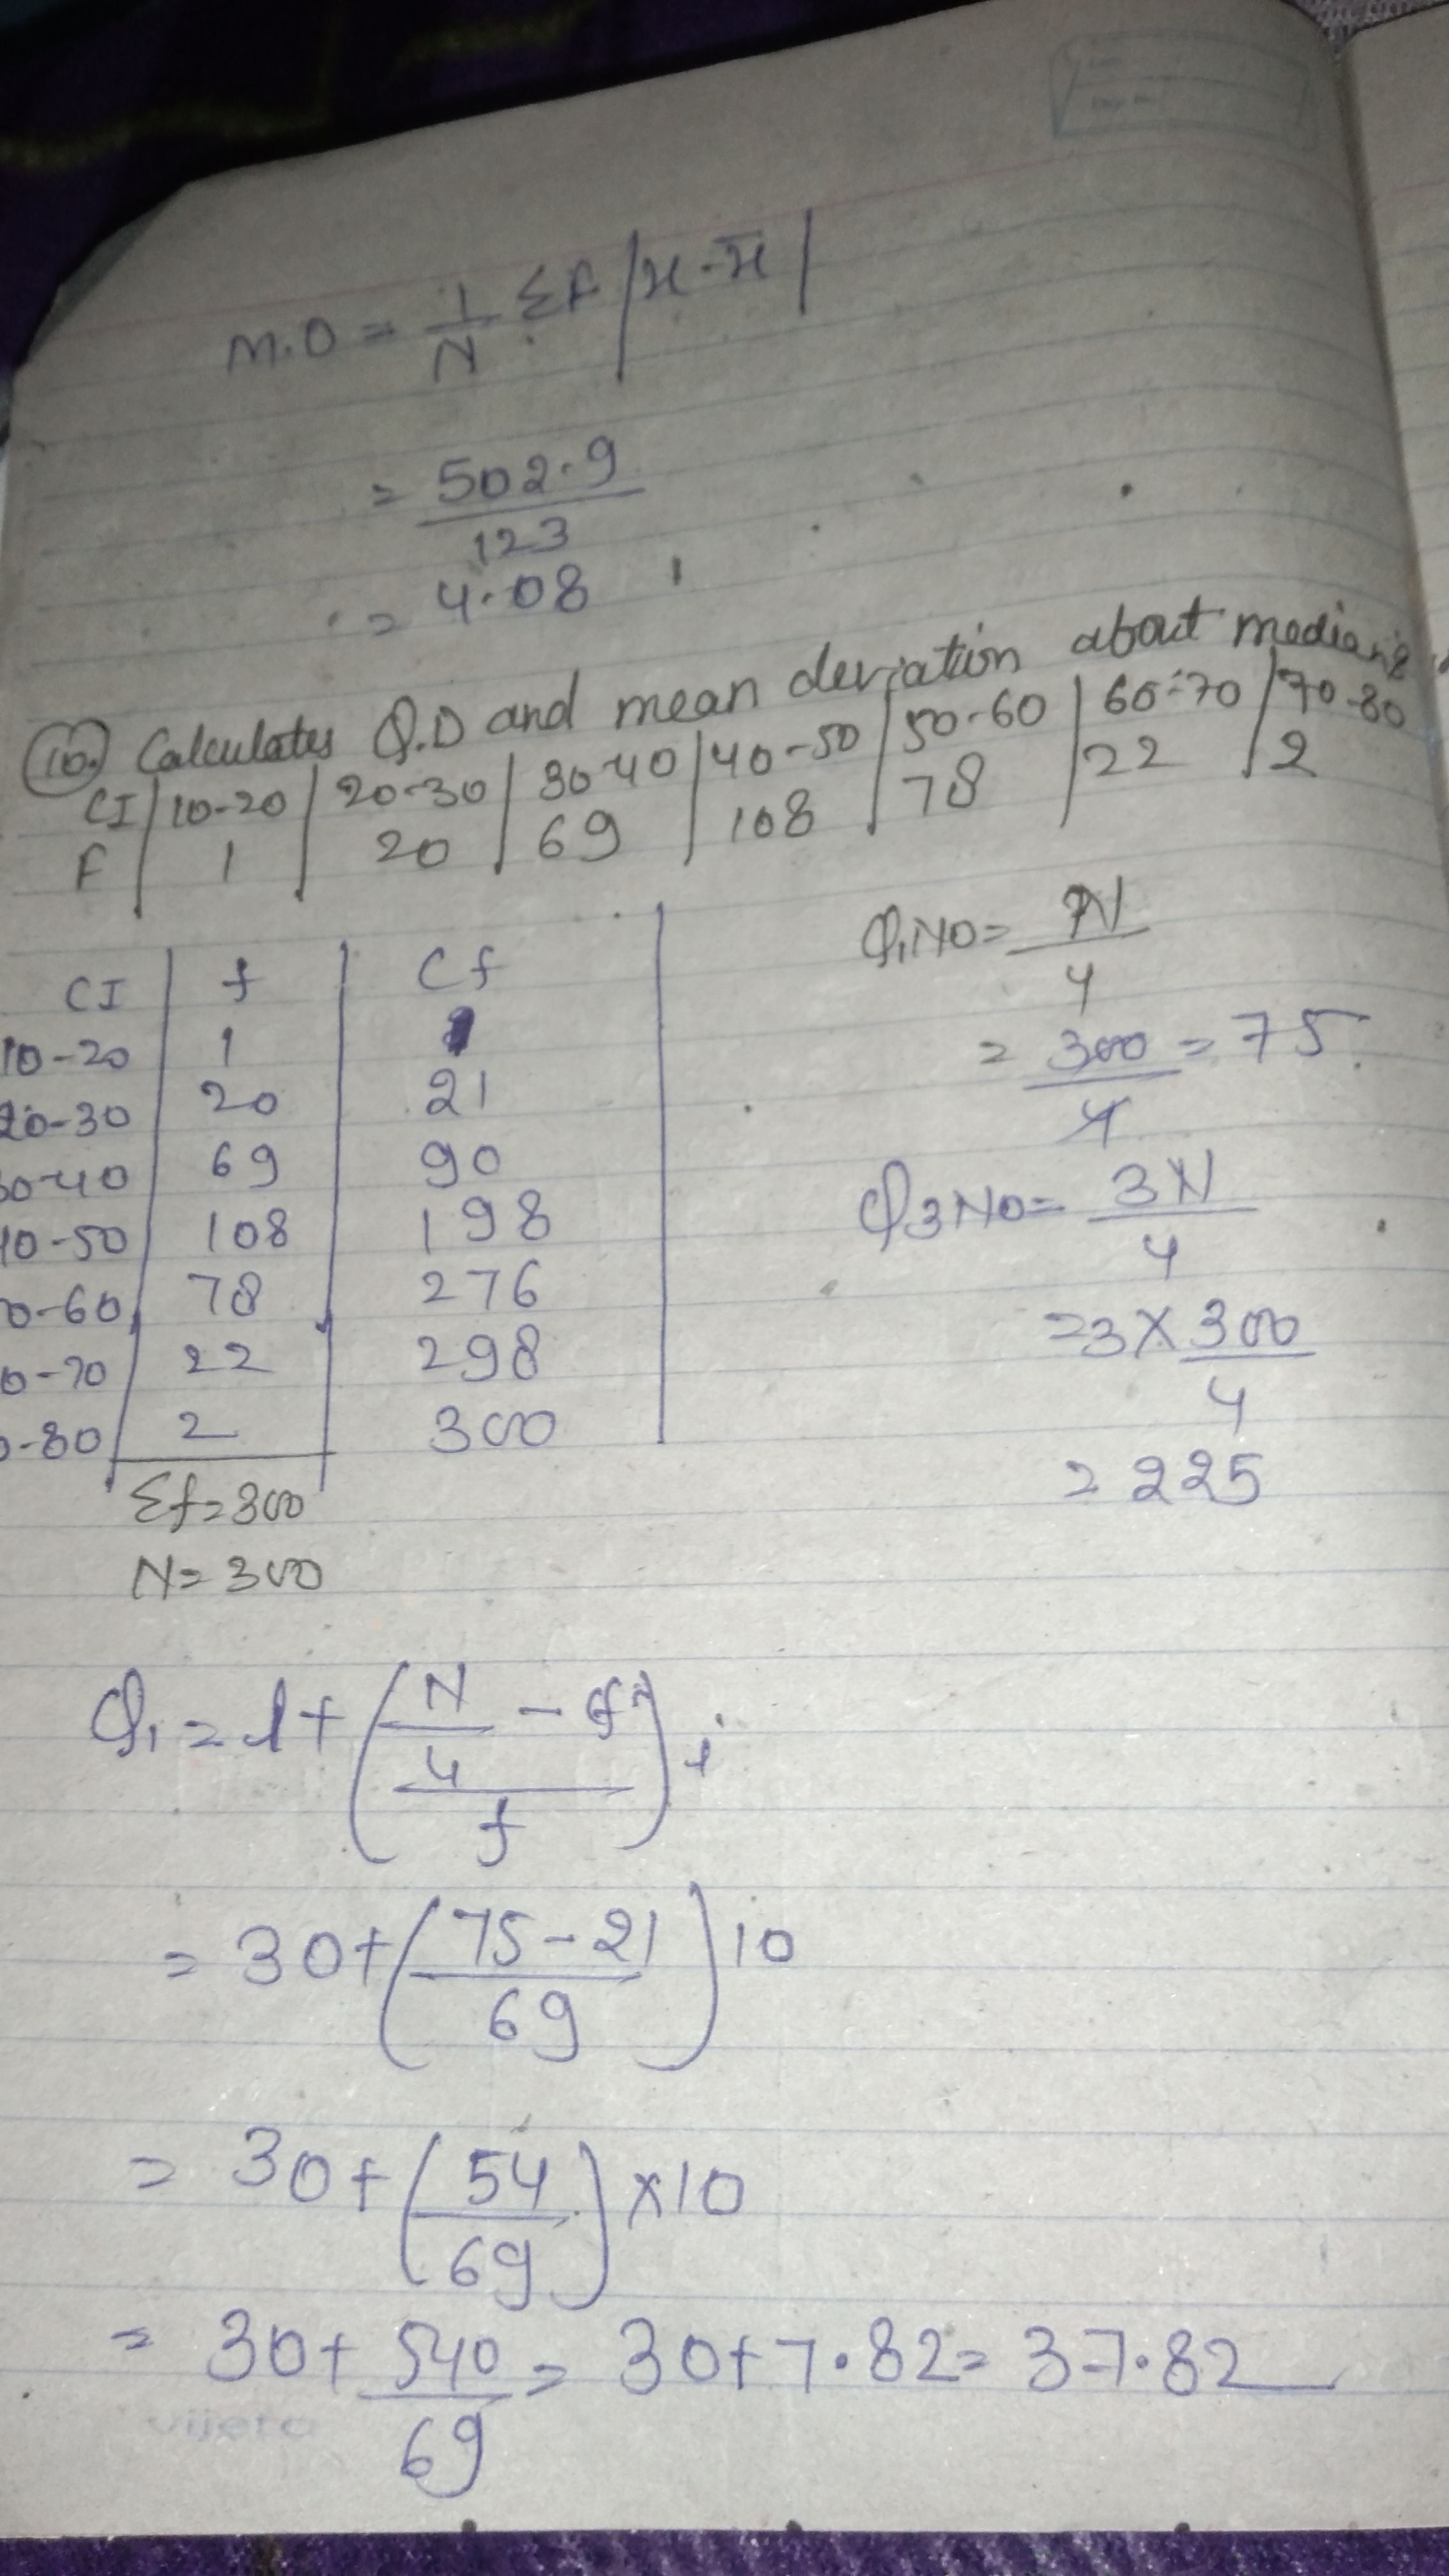 M.D = 1/N Σf |x-x̄|
= 502.9/123
= 4.08
10. Calculates Q.D and mean deviation about median
CI | 10-20 | 20-30 | 30-40 | 40-50 | 50-60 | 60-70 | 70-80
F | 1 | 20 | 69 | 108 | 78 | 22 | 2
CI | f | Cf
10-20 | 1 | 1
20-30 | 20 | 21
30-40 | 69 | 90
40-50 | 108 | 198
0-60 | 78 | 276
0-70 | 22 | 298
-80 | 2 | 300
Σf=300
N=300
Q₁NO= N/4
= 300/4 = 75
Q3NO= 3N/4
=3×300/4
= 225
Q₁ = l+ (N/4 - cf / f) i
= 30+ (75-21 / 69) 10
= 30+ (54/69) ×10
= 30+ 540/69 = 30+7.82= 37.82
vijeta